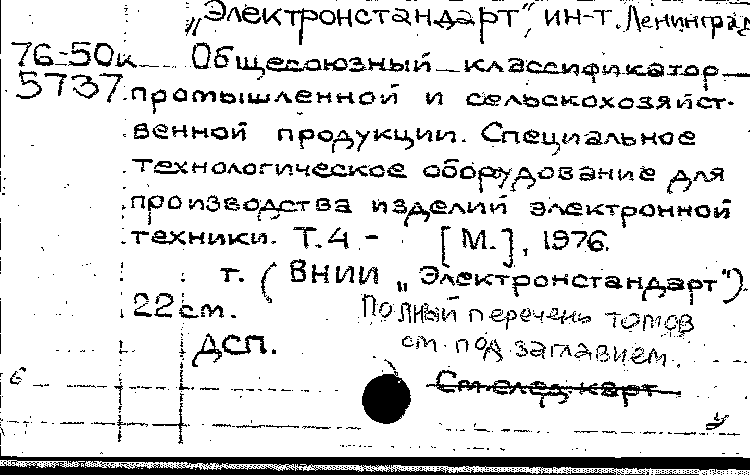 „Электронстандарт", ин-т. Ленинград
76-50к Общесоюзный классификатор
5737 промышленной и сельскохозяйст-
венной продукции. Специальное
технологическое оборудование для
производства изделий электронной
техники. Т.4 - [М.], 1976.
т. (ВНИИ „Электронстандарт").
22 см. Полный перечень томов
ДСП. см. под заглавием.
См. след. карт
6
у